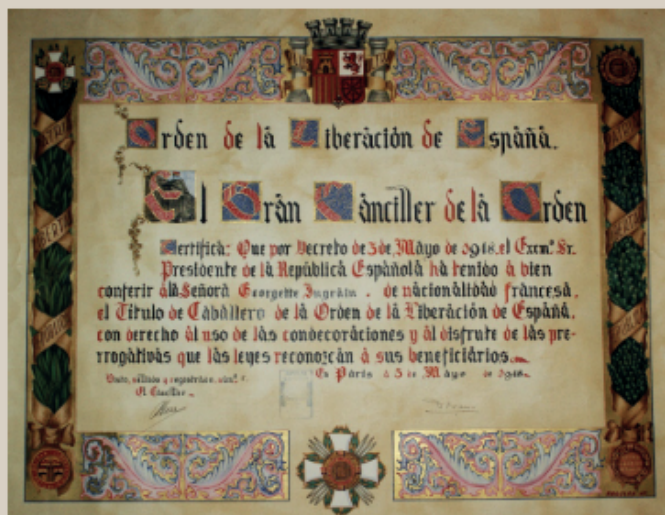 Orden de la Liberación de España.
El Gran Canciller de la Orden
Certifica: Que por Decreto de 3 de Mayo de 1948. el Excmº. Sr.
Presidente de la República Española ha tenido a bien
conferir a la Señora Georgette . de nacionalidad francesa,
el Título de Caballero de la Orden de la Liberación de España,
con derecho al uso de las condecoraciones y al disfrute de las pre-
rrogativas que las leyes reconozcan a sus beneficiarios.
En París a 3 de Mayo de 1948.
El Canciller